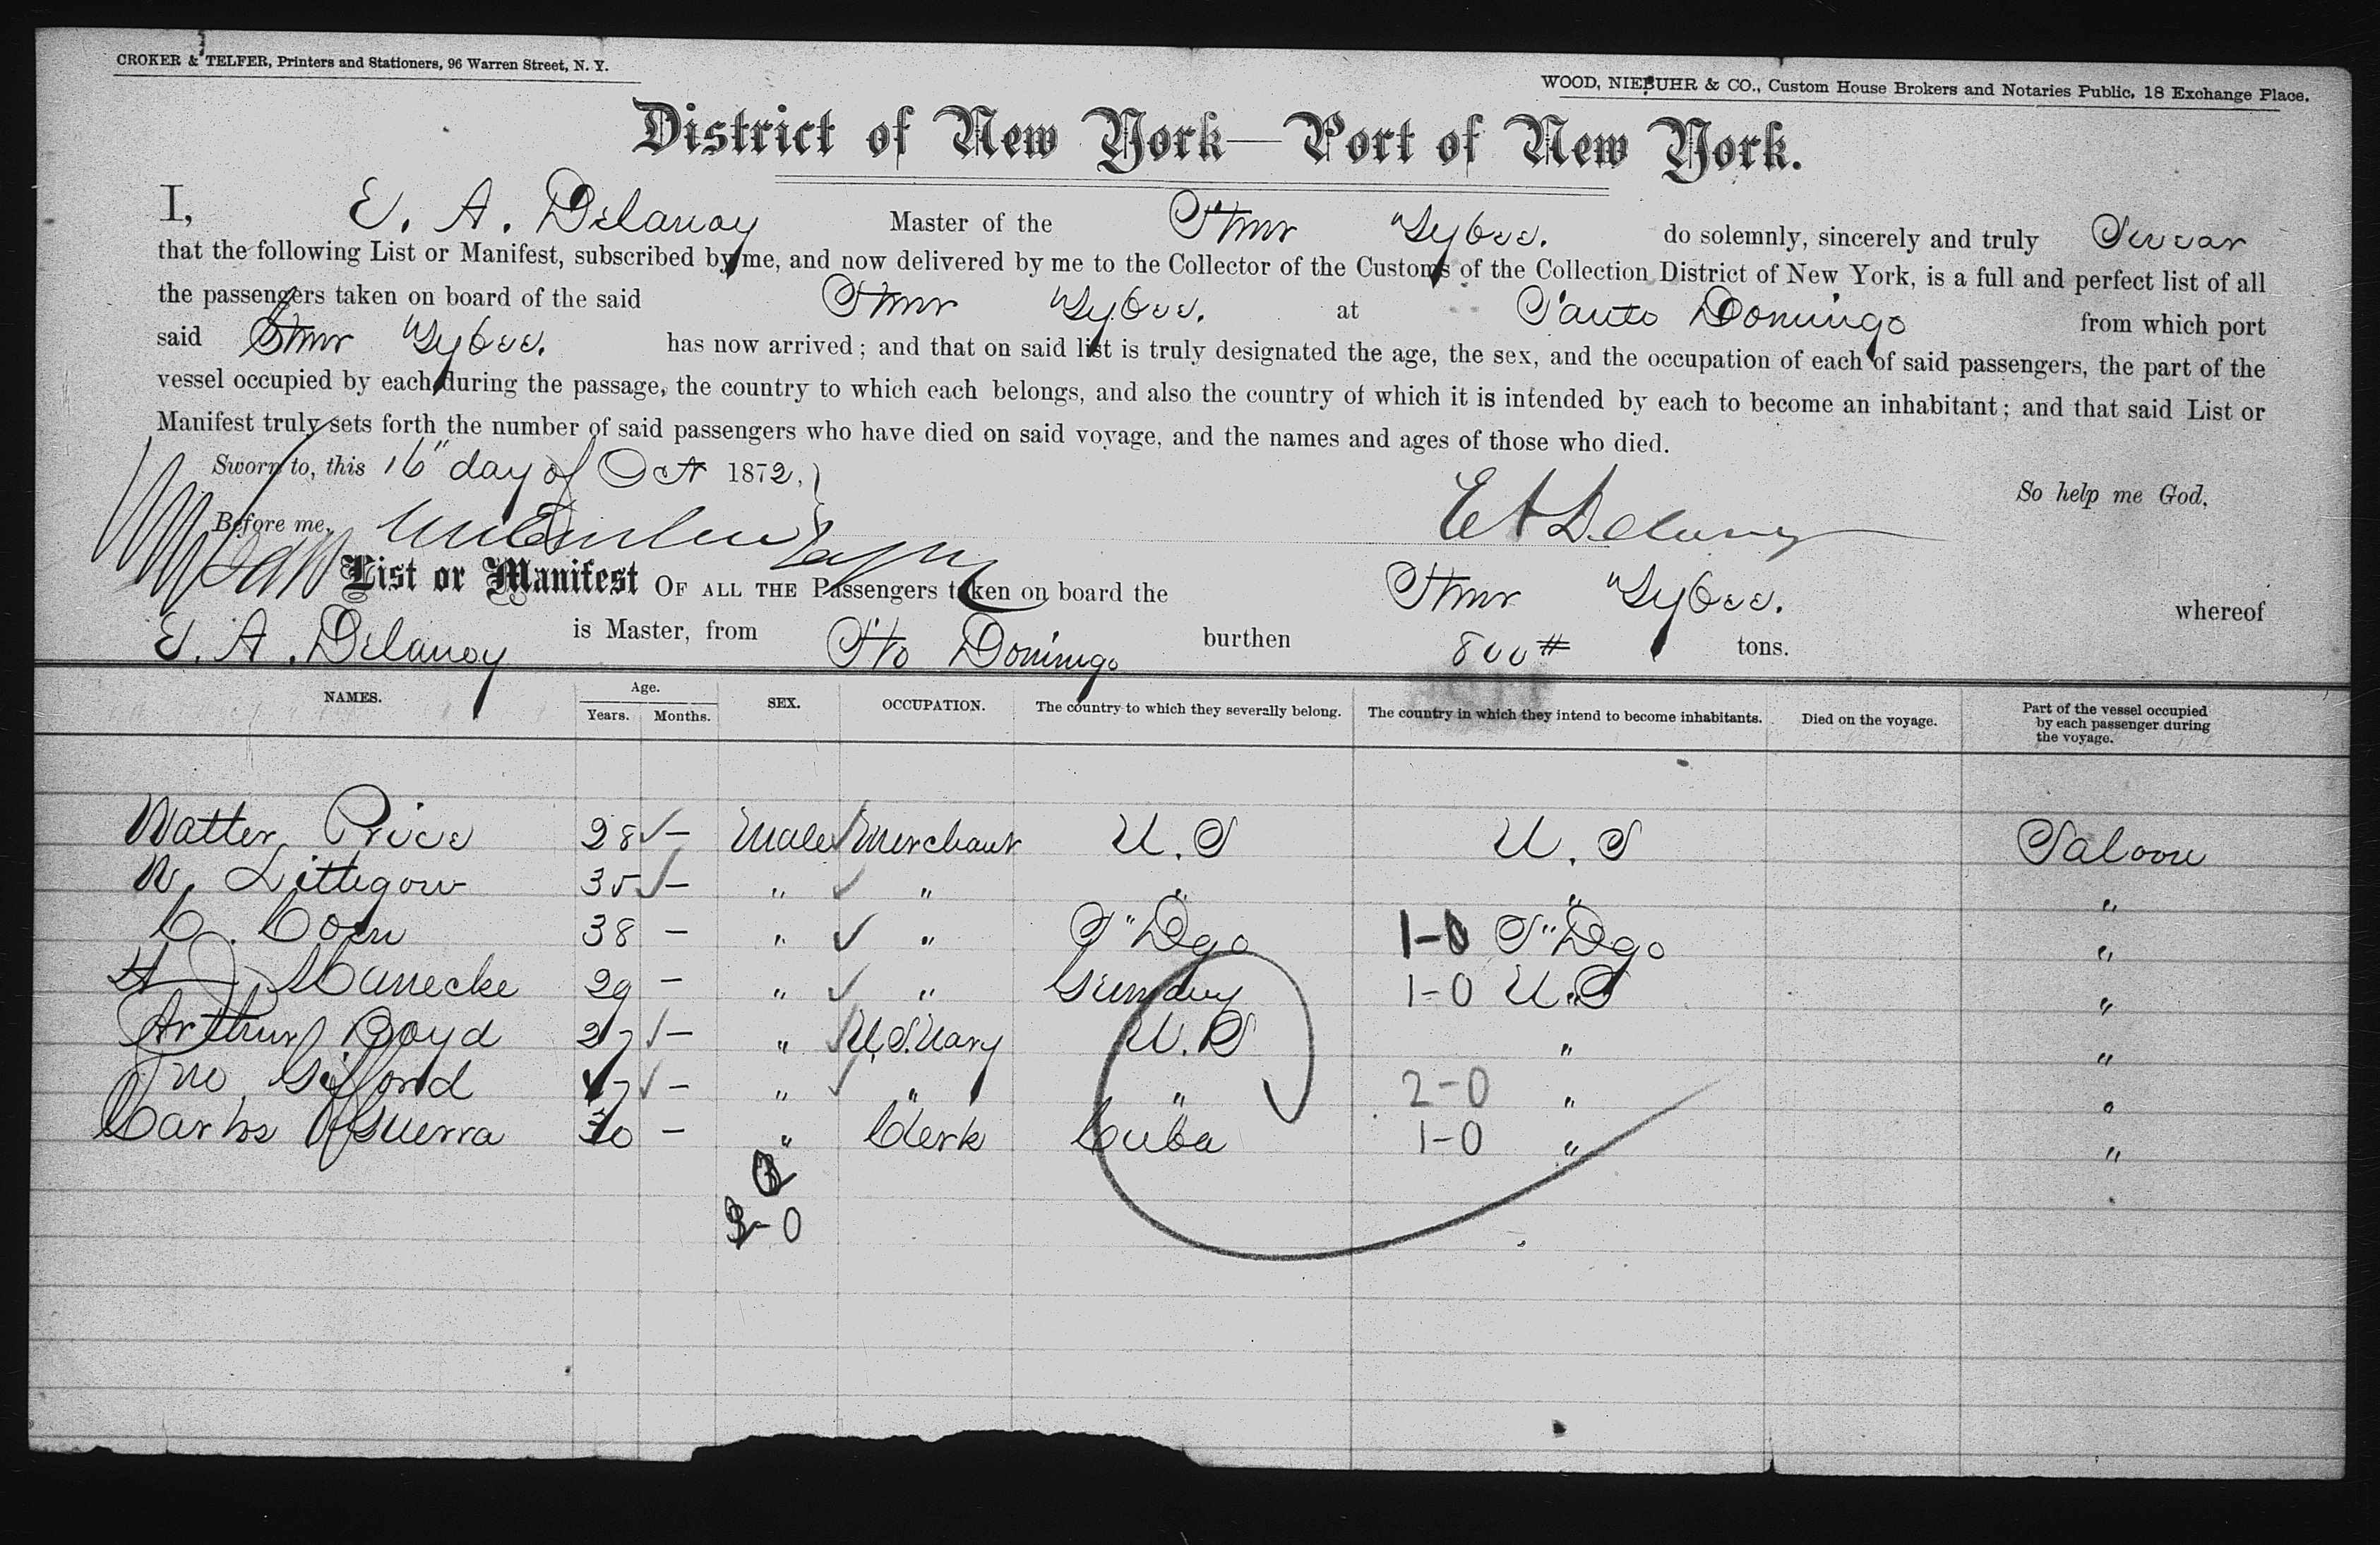 CROKER & TELFER, Printers and Stationers, 96 Warren Street, N. Y.
WOOD, NIEBUHR & CO., Custom House Brokers and Notaries Public, 18 Exchange Place.
District of New York—Port of New York.
I, E. A. Delanoy Master of the Stmr "Tybee. do solemnly, sincerely and truly Swear
that the following List or Manifest, subscribed by me, and now delivered by me to the Collector of the Customs of the Collection District of New York, is a full and perfect list of all
the passengers taken on board of the said Stmr "Tybee. at Santo Domingo from which port
said Stmr "Tybee. has now arrived; and that on said list is truly designated the age, the sex, and the occupation of each of said passengers, the part of the
vessel occupied by each during the passage, the country to which each belongs, and also the country of which it is intended by each to become an inhabitant; and that said List or
Manifest truly sets forth the number of said passengers who have died on said voyage, and the names and ages of those who died.
Sworn to, this 16" day of Oct 1872,
So help me God,
Before me, E A Delanoy
List or Manifest OF ALL THE Passengers taken on board the Stmr "Tybee. whereof
E. A. Delanoy is Master, from Sto Domingo burthen 800 # tons.
NAMES. Age. Years. Months. SEX. OCCUPATION. The country to which they severally belong. The country in which they intend to become inhabitants. Died on the voyage. Part of the vessel occupied by each passenger during the voyage.
Walter Price 28 ✓ – Male ✓ Merchant U. S U. S Saloon
W. Littegow 35 ✓ – " ✓ " " " "
C. Coen 38 – " ✓ " S" Dgo 1-0 S" Dgo "
29 – " ✓ " Germany 1-0 U. S "
Arthur Boyd 27 ✓ – " ✓ U. S. Navy U. S " "
Jno Gifford ✓ – " ✓ " " 2-0 " "
Carlos Guerra 30 – " Clerk Cuba 1-0 " "